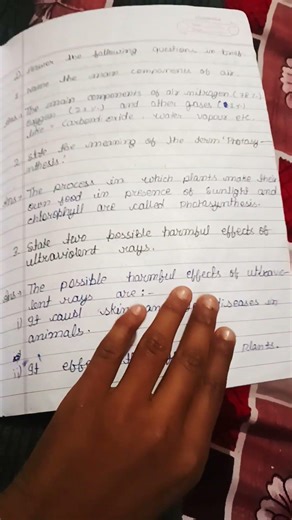 Answer the following questions in brief.
1. Name the main components of air.
Ans - The main components of air nitrogen (78%)
oxygen (21%) and other gases
like - carbon oxide, water vapour etc.
2. State the meaning of the term 'Photosy-
nthesis'.
Ans - The process in which plants make their
own food in presence of sunlight and
chlorophyll are called photosynthesis.
3. State two possible harmful effects of
ultraviolent rays.
Ans - The possible harmful effects of ultravi-
lent rays are :-
i) It causl skin an diseases in
animals.
ii) It effe plants.